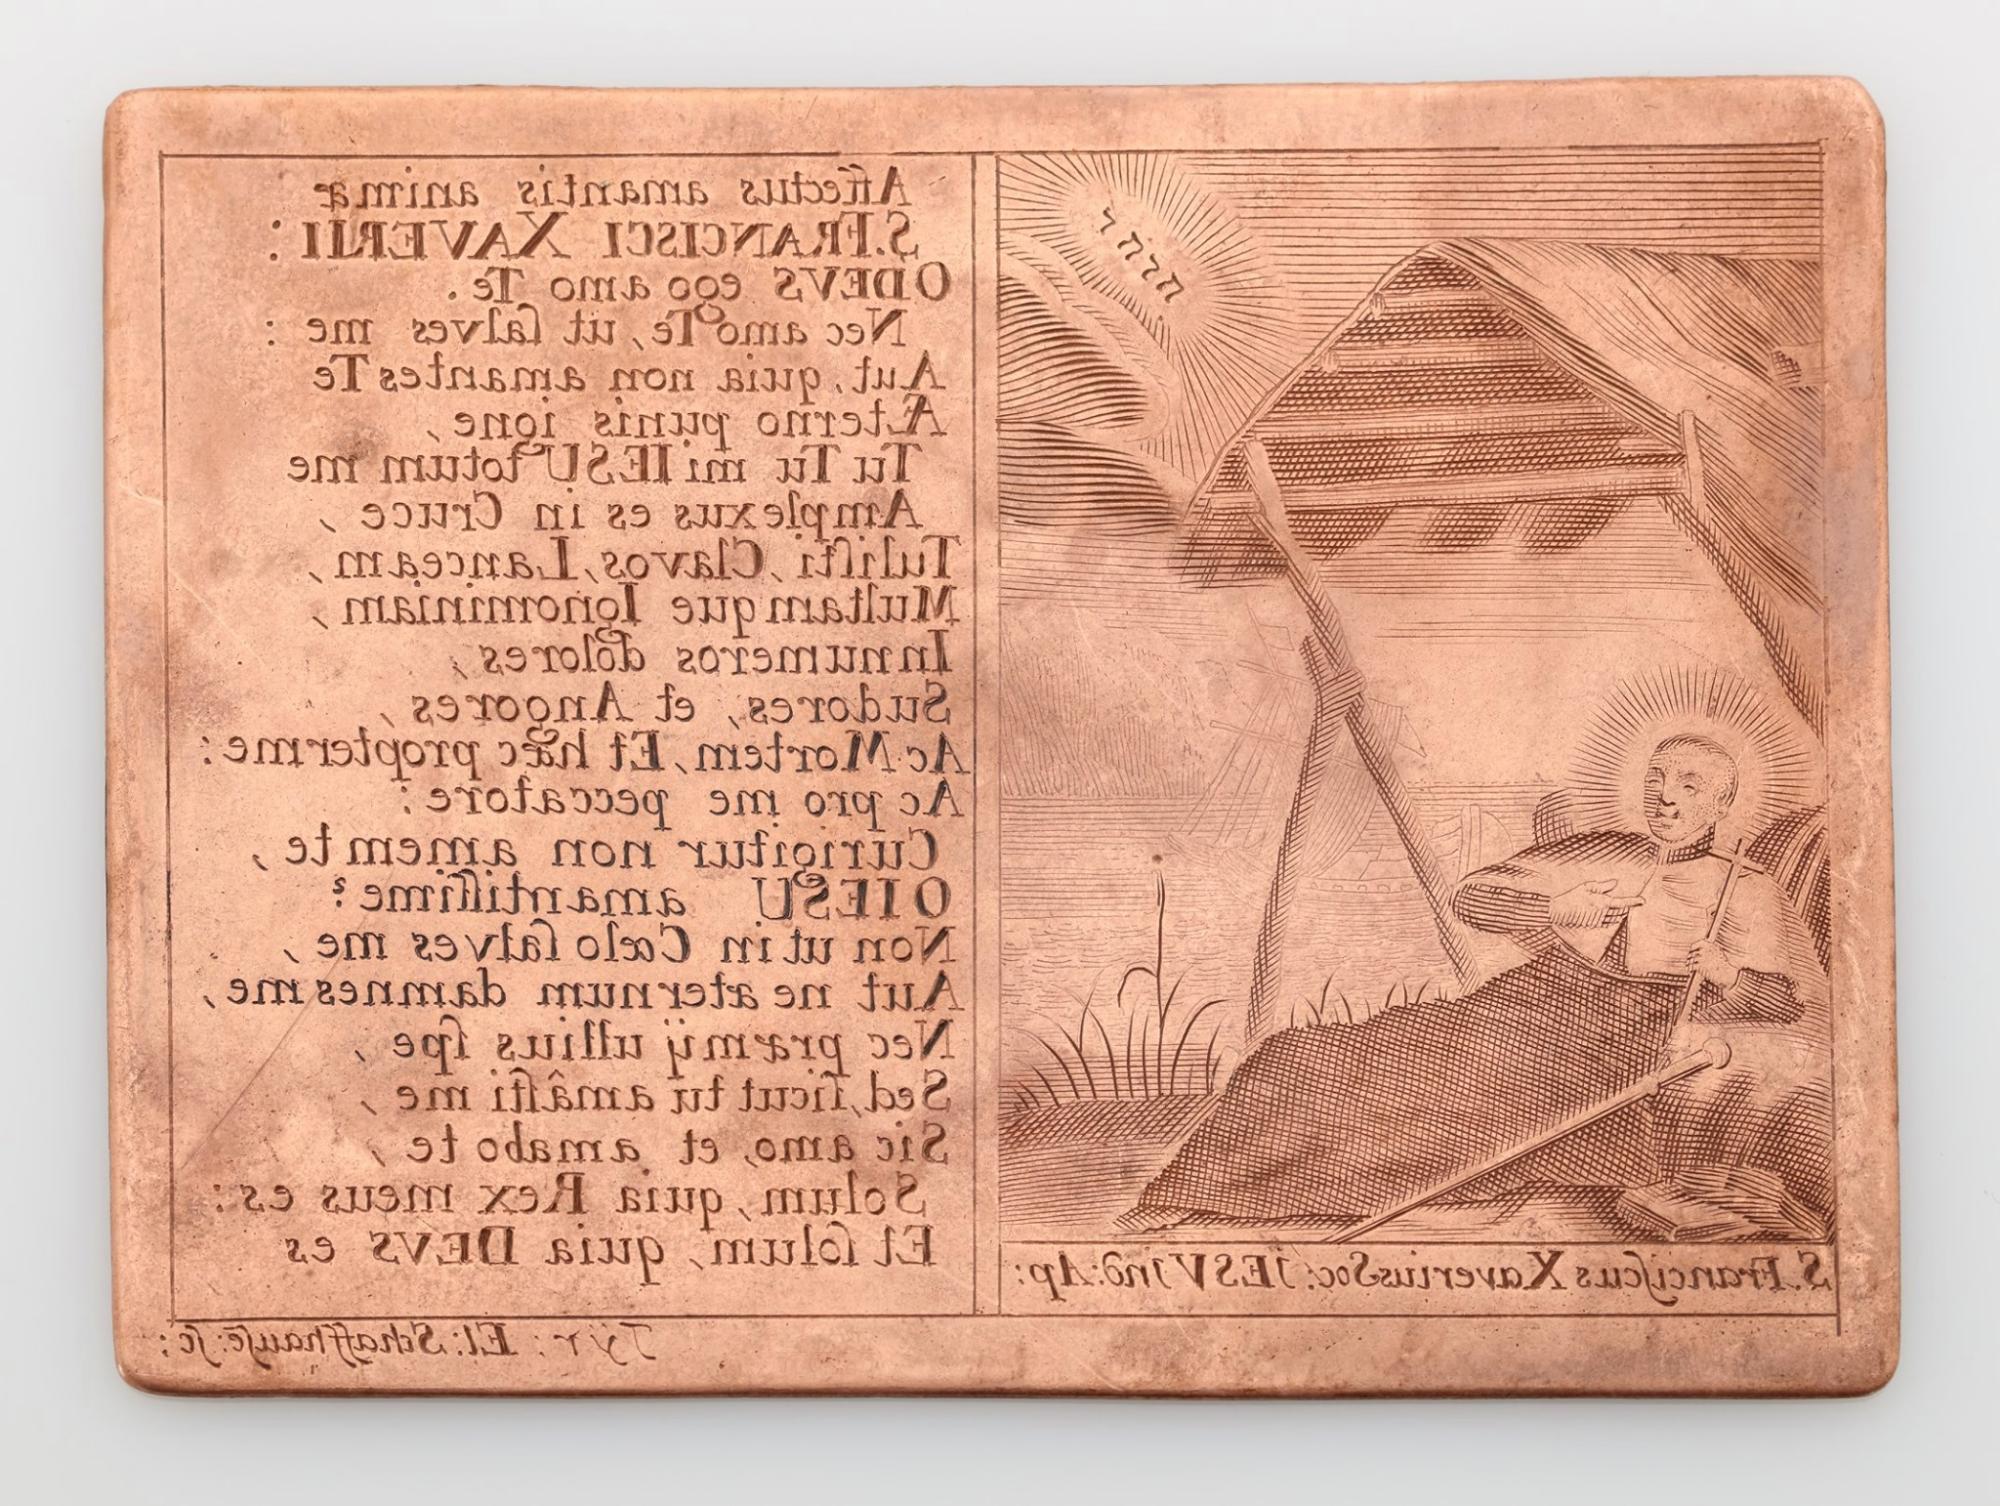 Affectus amantis animæ
S. FRANCISCI XAVERII :
O DEVS ego amo Te.
Nec amo Te, ut ſalves me :
Aut, quia non amantes Te
Æterno punis igne,
Tu Tu mi IESU totum me
Amplexus es in Cruce,
Tuliſti, Clavos, Lanceam,
Multamque Ignominiam,
Innumeros dolores,
Sudores, et Angores,
Ac Mortem, Et hæc propter me :
Ac pro me peccatore :
Cur igitur non amem te,
O IESU amantiſſime?
Non ut in Cœlo ſalves me,
Aut ne æternum damnes me,
Nec præmij ullius ſpe,
Sed, ſicut tu amâſti me,
Sic amo, et amabo te,
Solum, quia Rex meus es :
Et ſolum, quia DEVS es
יהוה
S. Franciſcus Xaverius Soc: JESV Ind: Ap:
Tÿr: El: Schaffhauſe: ſc: